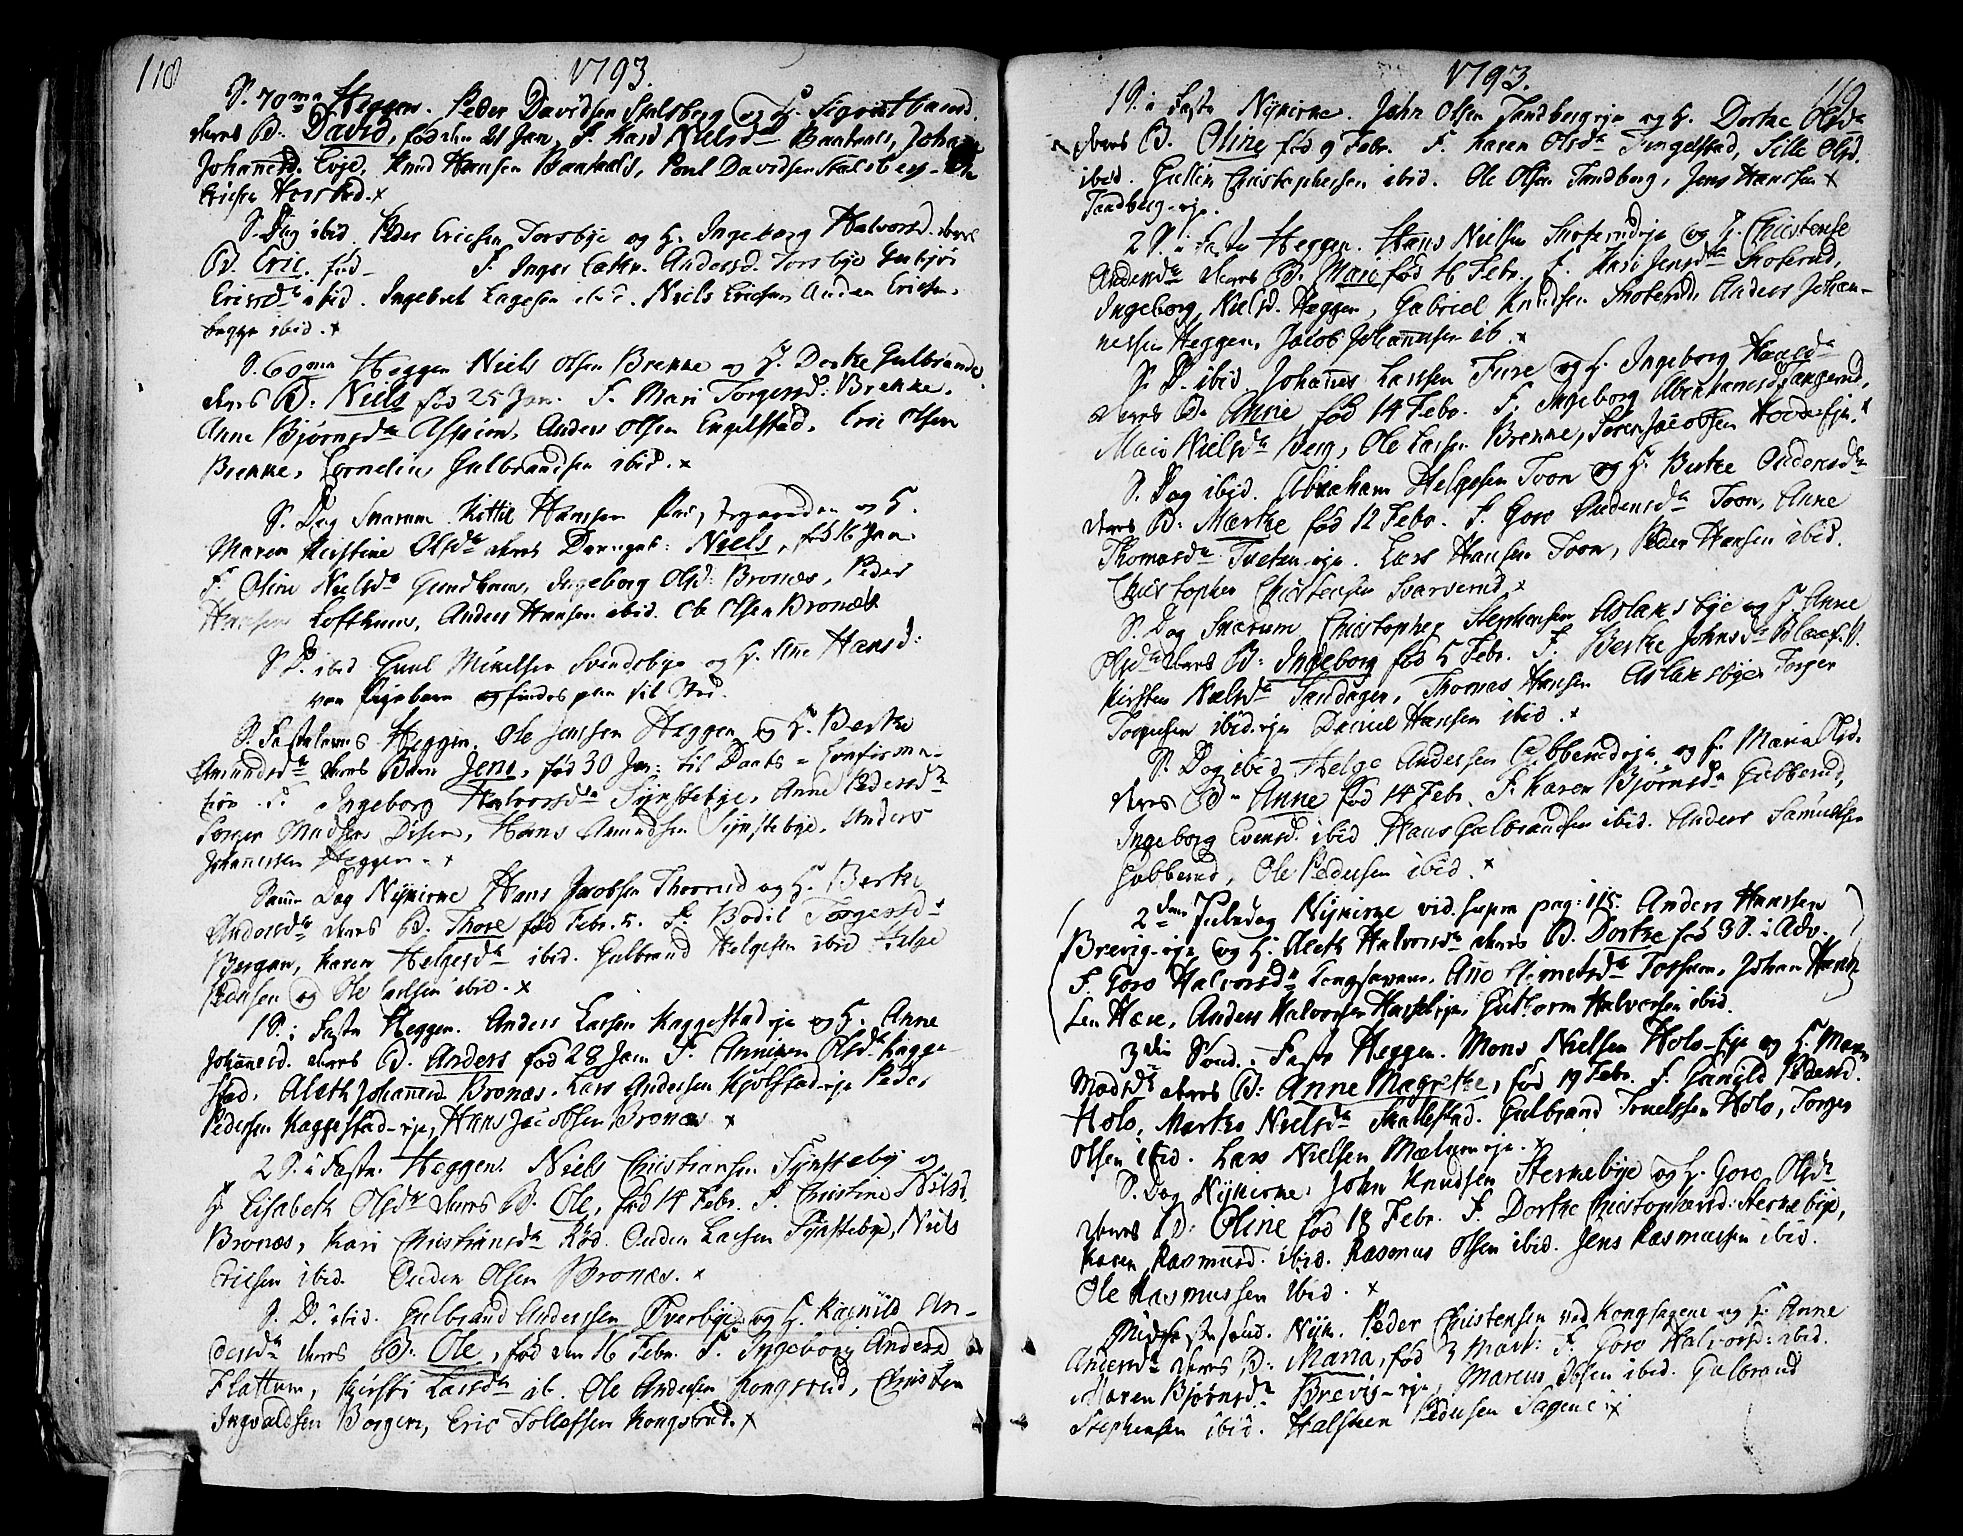 118
1793.
S. 70ma Heggen. Peder Davidsen Stalsberg og H. Sigrid Hansd.
deres B: David, fød den 21 Jan, F. Kari Nielsda Baataas, Johanne
Johannesd. Evje, Knud Hansen Baataas, Poul Davidsen Stalsberg
Ericsen Horstad. x
S. Dag ibid. Peder Ericsen Torsbye og H. Ingeborg Halvorsd. deres
B. Eric, fød F. Inger Cathr. Andersd. Torsbye Gubjør
Ericsda ibid. Ingebret Lagesen ibid. Niels Ericsen, Anden Ericsen,
begge ibid. x
S. 60ma Heggen Niels Olsen Brekke og H. Dorthe Gulbrands
deres B: Niels fød 25 Jan. F. Mari Torgersd: Brekke,
Anne Bjørnsda Aspeien, Anders Olsen Engelstad, Eric Olsen
Brekke, Cornelius Gulbrandsen ibid. x
S. Dag Snarum Kittil Hanssen og H.
Maren Kirstine Olsda deres Drengeb: Niels, fød 16 Jan.
F. Oline Nielsda Gundhuus, Ingeborg Olsd: Bronæs, Peder
Hansen Lofthuus, Anders Hansen ibid. Ole Olsen Bronæs
S. D. ibid Guul Mikelsen Svendsbye og H. Ane Hansd:
var Pigebarn og findes paa sit Sted.
S. Fastelavns Heggen, Ole Jenssen Heggen og H. Berthe
Amundsda deres Barn Jens, fød 30 Jan: til Daabs-Confirma-
tion. F. Ingeborg Halvorsda Synstebye, Anne Pedersda
Torger Madsen Disen, Hans Amundsen Synstebye, Anders
Johannessen Heggen. x
Samme Dag Nykirke Hans Jacobsen Thorrud og H. Berthe
Andersda deres B: Thore fød Febr. 5. F. Bodil Torgersda
Bergan, Karen Helgesda ibid. Gulbrand Helgesen ibid Helge
Pedersen og Ole Carlsen ibid. x
1 S. i Faste Heggen. Anders Larsen Kaggestad-eje og H. Anne
Johannesd. deres B. Anders fød 28 Jan F. Anniken Olsda Kagge-
stad, Aleth Johannesd. Bronæs, Lars Andersen Kjølstad-eje Peder
Pedersen Kaggestad-eje, Hans Jacobsen Bronæs x
2 S. i Faste Heggen. Niels Christiansen Synstebye og
H. Lisabeth Olsda deres B. Ole, fød 14 Febr. F. Christine Nilsd.
Bronæs, Kari Christiansda Rød. Ouden Larsen Synstebye, Niels
Ericsen ibid. Ouden Olsen Bronæs. x
S. D. ibid. Gulbrand Anderssen Overbye og H. Ragnild An-
dersda deres B: Ole, fød den 16 Febr. F. Ingeborg Andersd
Flattum, Kirsti Larsda ib. Ole Andersen Kongsrud, Christen
Ingvaldsen Borgen, Eric Tollefsen Kongsrud. x
119
1793.
1 S. i Faste Nykirke. John Olsen Tandberg-eje og H. Dorthe Olsda
deres B. Oline fød 9 Febr. F. Karen Olsda Tingelstad, Sille Olsd.
ibid. Gullin Christophersen ibid. Ole Olsen Tandberg, Jens Hanssen x
Tandberg-eje.
2 S. i Faste Heggen. Hans Nielsen Skoterud-eje og H. Christense
Andersda deres B. Mari fød 16 Febr. F. Kari Jensda Skoterud,
Ingeborg Nielsd. Heggen, Gabriel Knudsen Skoterud, Anders Johan-
nessen Heggen, Jacob Johannssen ib. x
S. D. ibid Johannes Larssen Fure og H. Ingeborg Haralda
deres B. Anne fød 14 Febr. F. Ingeborg Abrahamsd. Tangerud,
Mari Nielsda Berg, Ole Larsen Brekke, Søren Jacobsen Hovde-eje. x
S. Dag ibid. Abraham Helgesen Toon og H. Berthe Oudensda
deres B: Marthe fød 12 Febr. F. Goro Oudensda Toon, Anne
Thomasda Tveten-eje. Lars Hansen Toon, Peder Hansen ibid.
Christopher Christensen Svarverud x
S. Dag Snarum Christopher Stephensen Aslaksbye og H. Anne
Olsda deres B: Ingeborg fød 5 Febr. F. Berthe Johnsda
Kirsten Nielsda Sandagen, Thomas Hansen Aslaksbye Torger
Torgersen ibid-eje Daniel Hansen ibid. x
S. Dag ibid Helge Andersen Gubberud-eje og H. Maria Olsd.
deres B. Anne fød 14 Febr. F. Karen Bjørnsda Gubberud,
Ingeborg Evensd. ibid Hans Gulbrandsen ibid. Anders Samuelsen
Gubberud, Ole Pedersen ibid. x
(2den Juledag Nykirke vid. supra pag: 115. Anders Hanssen
Brevig-eje og H. Aleth Halvorsda deres B. Dorthe fød 3 D. i Adv.
F. Goro Halvorsda Kongsagene, Ane Torsen, Johan Hans
sen Hære, Anders Halvorsen Hassel-eje, Guthorm Halvorsen ibid.)
3die Sønd. i Faste Heggen. Mons Nielsen Holo-eje og H. Maren
Madsda deres B: Anne Magrethe, fød 19 Febr. F. Gunild Pedersd.
Holo, Marthe Nielsda Skallestad. Gulbrand Truelssen Holo, Torger
Olsen ibid. Lars Nielsen Mælum-eje. x
S. Dag Nykirke John Knudsen Sterkebye og H. Goro Olsda
deres B: Oline fød 18 Febr. F. Dorthe Christophersd: Sterkebye,
Karen Rasmusd. ibid. Rasmus Olsen ibid. Jens Rasmussen ibid.
Ole Rasmussen ibid. x
Midfaste Sønd. Nyk. Peder Christensen ved Kongsagene og H. Anne
Andersda deres B: Maria, fød 3 Mart: F. Goro Halvorsd: ibid.
Maren Bjørnsda Brevig-eje, Marcus Ibsen ibid. Gulbrand
Stephensen ibid. Halsten Pedersen Sagene x